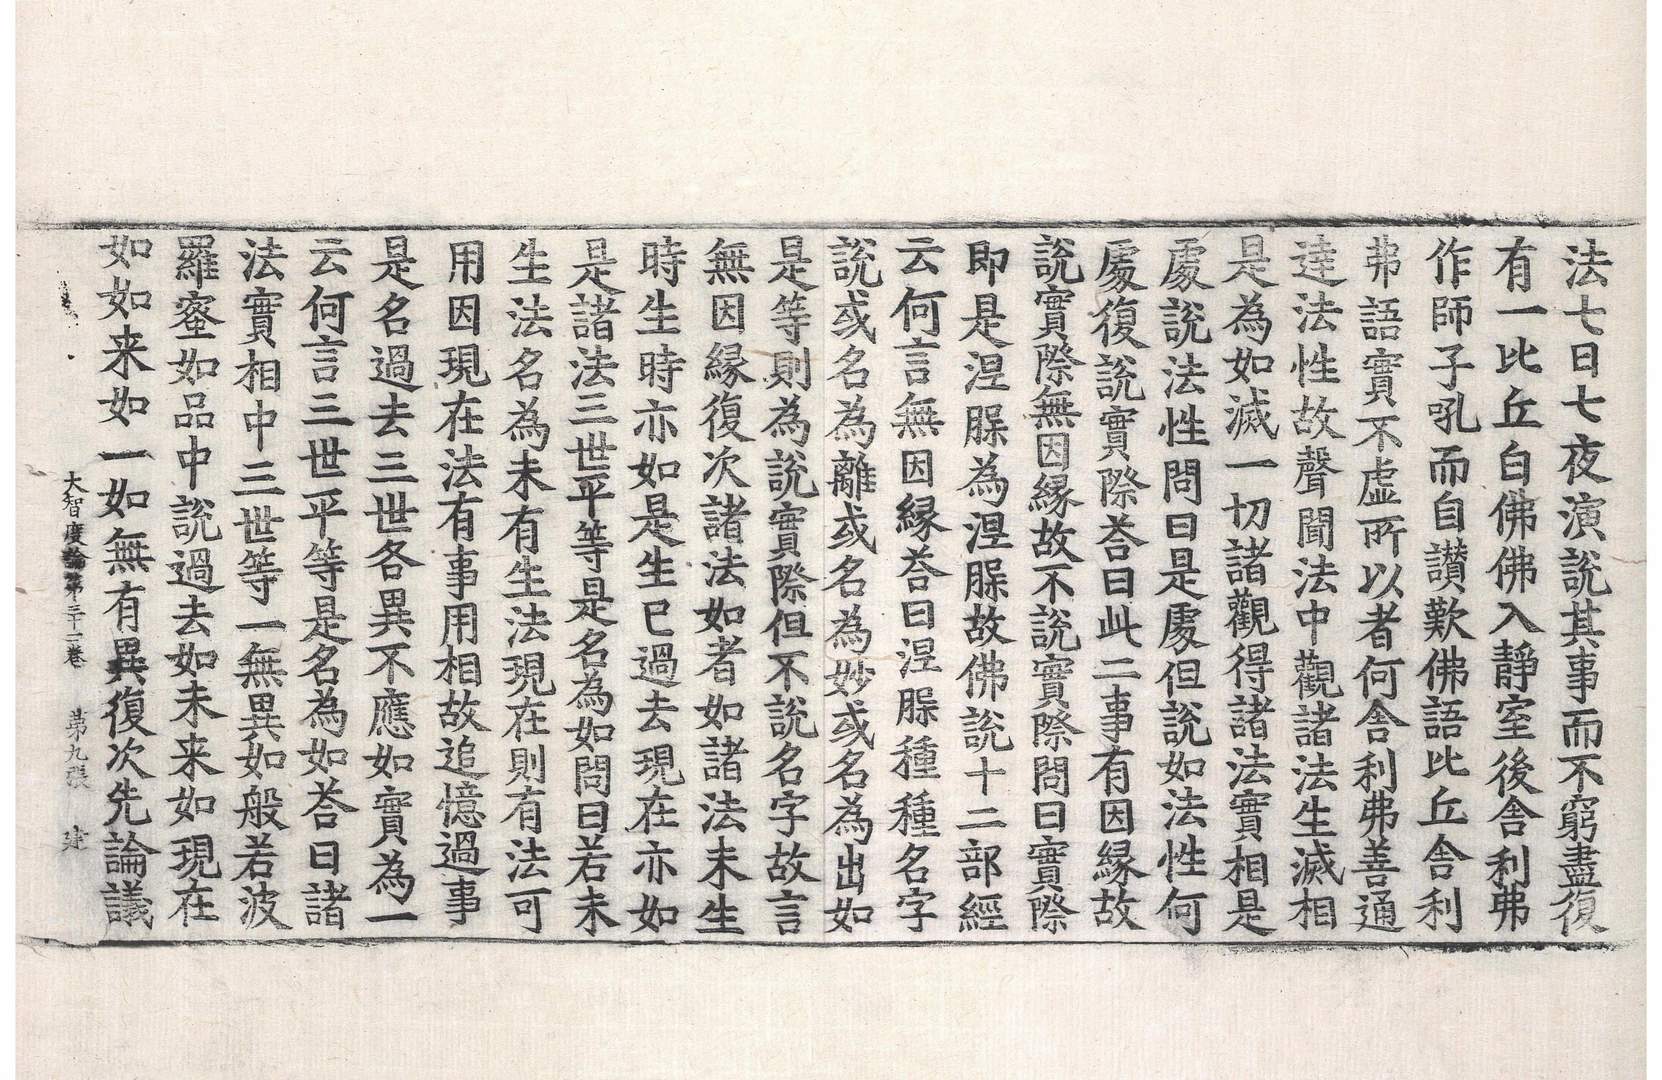 法七日七夜演説其事而不窮盡復
有一比丘白佛佛入靜室後舎利弗
作師子吼而自讃歎佛語比丘舎利
弗語實不虚所以者何舎利弗善通
達法性故聲聞法中觀諸法生滅相
是為如滅一切諸觀得諸法實相是
處説法性問曰是處但説如法性何
處復説實際荅曰此二事有因縁故
説實際無因縁故不説實際問曰實際
即是涅槃為涅槃故佛説十二部經
云何言無因縁荅曰涅槃種種名字
説或名為離或名為妙或名為出如
是等則為説實際但不説名字故言
無因縁復次諸法如者如諸法未生
時生時亦如是生已過去現在亦如
是諸法三世平等是名為如問曰若未
生法名為未有生法現在則有法可
用因現在法有事用相故追憶過事
是名過去三世各異不應如實為一
云何言三世平等是名為如荅曰諸
法實相中三世等一無異如般若波
羅蜜如品中説過去如未来如現在
如如来如一如無有異復次先論議
大智度論第三十二卷　第九張　建